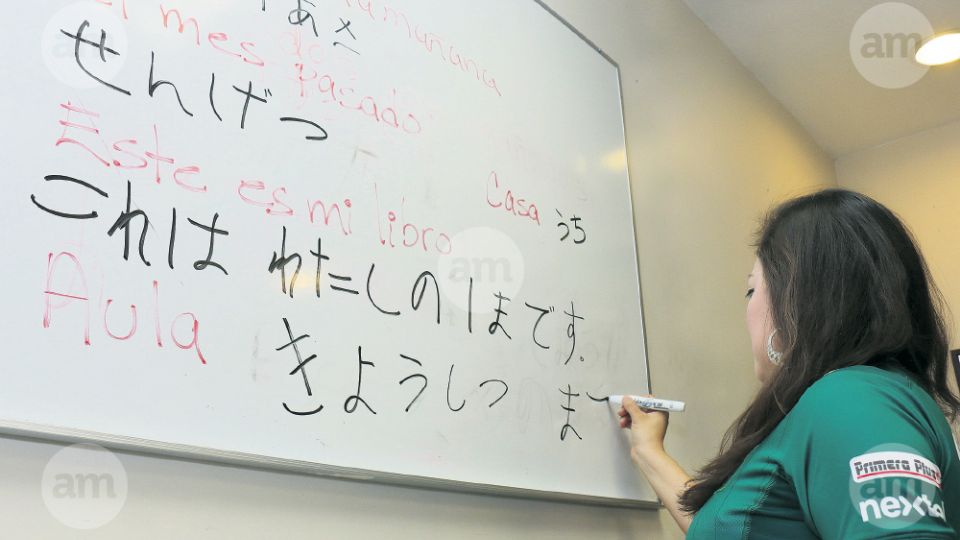 mañana
mes pasado
せんげつ
Este es mi libro
Casa うち
これは わたしの ほです。
Aula
きょうしつ
ま
Primera Plus
am
am
am
am
am